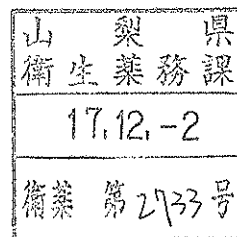 山梨県
衛生薬務課
17.12.-2
衛薬 第2733号